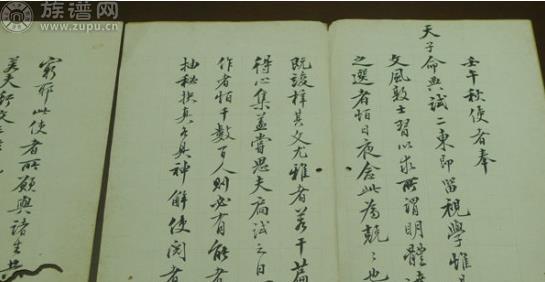 族谱网
www.zupu.cn
壬午秋使者奉
天子命典試二東即留視學惟
文風敦士習以求所謂明體達
之選者恒日夜念此為兢々也
既竣梓其文尤雅者若干篇
得心集蓋嘗思夫扃試之日
作者恒千數百人則必有能者
抽秘抉真具神解使閱者
窮耶此使者所願與諸生共